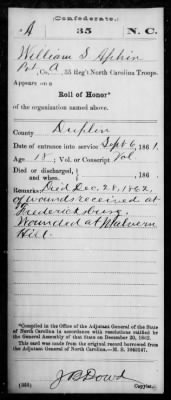 (Confederate.)
A 35 N. C.
William S Aphin
Pvt. A
, Co. , 35 Reg't North Carolina Troops.
Appears on a
Roll of Honor*
of the organization named above.
County Duplin
Date of entrance into service Sept 6, 1861.
Age 18; Vol. or Conscript Vol.
Died or discharged,
and when. , 186 .
Remarks: Died Dec. 28, 1862,
of wounds received at
Fredericksburg.
Wounded at Malvern
Hill.
*Compiled in the Office of the Adjutant General of the State
of North Carolina in accordance with resolutions ratified by
the General Assembly of that State on December 20, 1862.
This card was made from the original record borrowed from
the Adjutant General of North Carolina.—R. &
J B Dowd
Copyist.